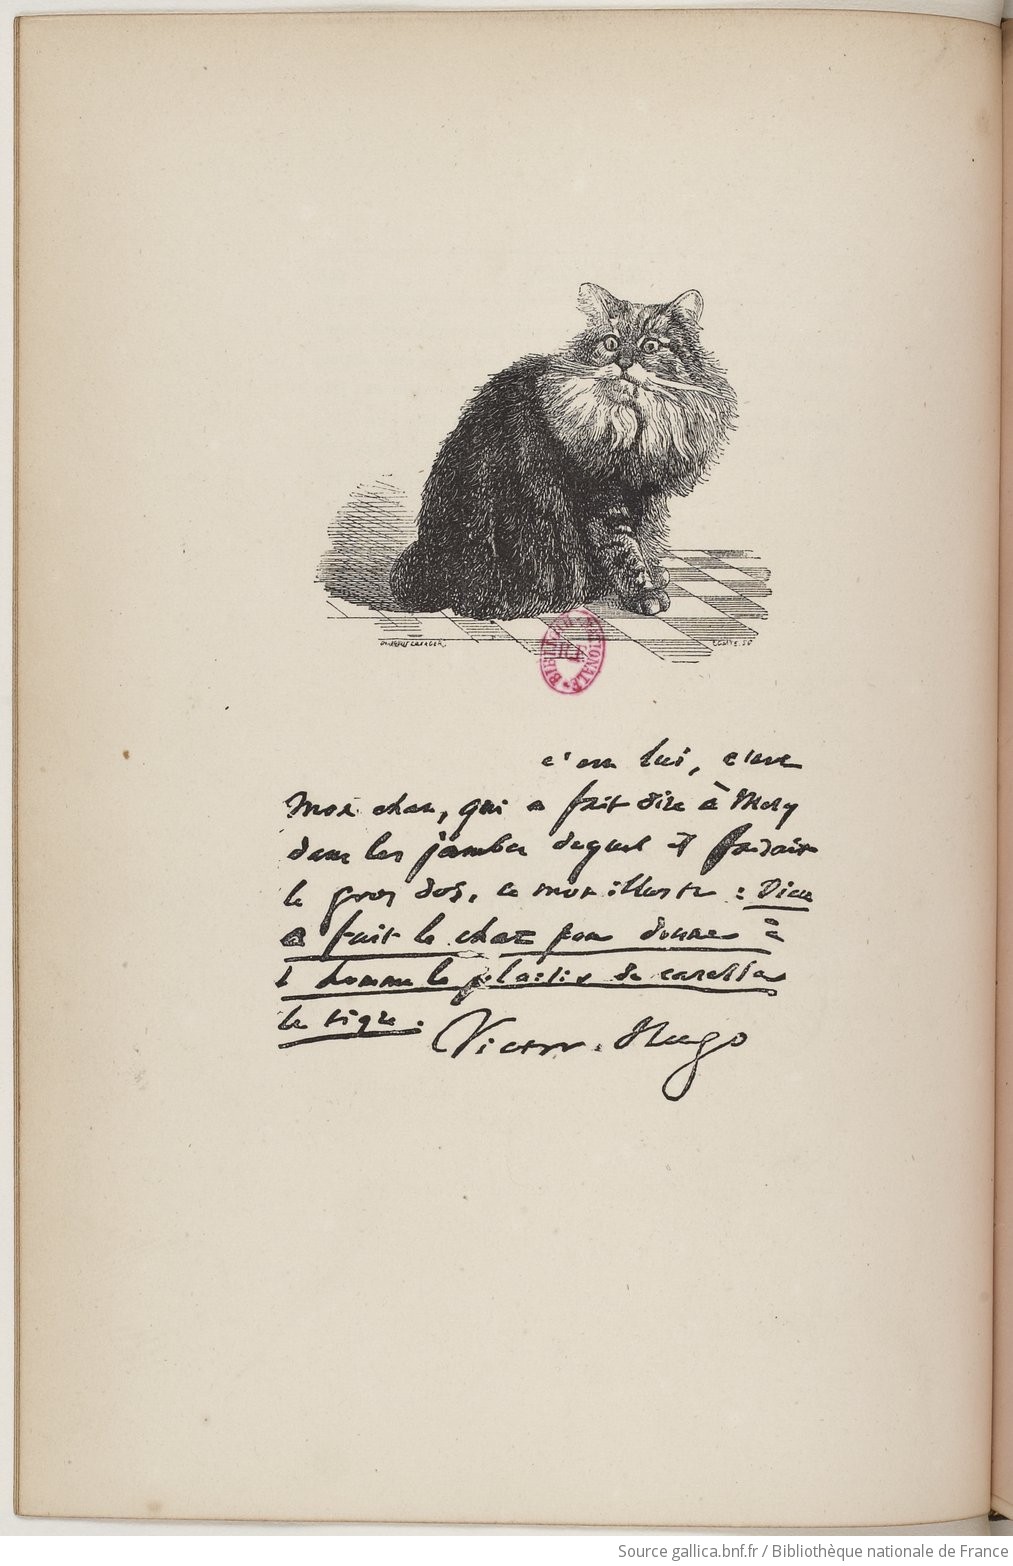 c'est lui, c'est
mon chat, qui a fait dire à Mery
dans les jambes duquel il faisait
le gros dos, ce mot illustre : Dieu
a fait le chat pour donner à
l'homme le plaisir de caresser
le tigre.
Victor Hugo
BIBLIOTHÈQUE NATIONALE
Source gallica.bnf.fr / Bibliothèque nationale de France